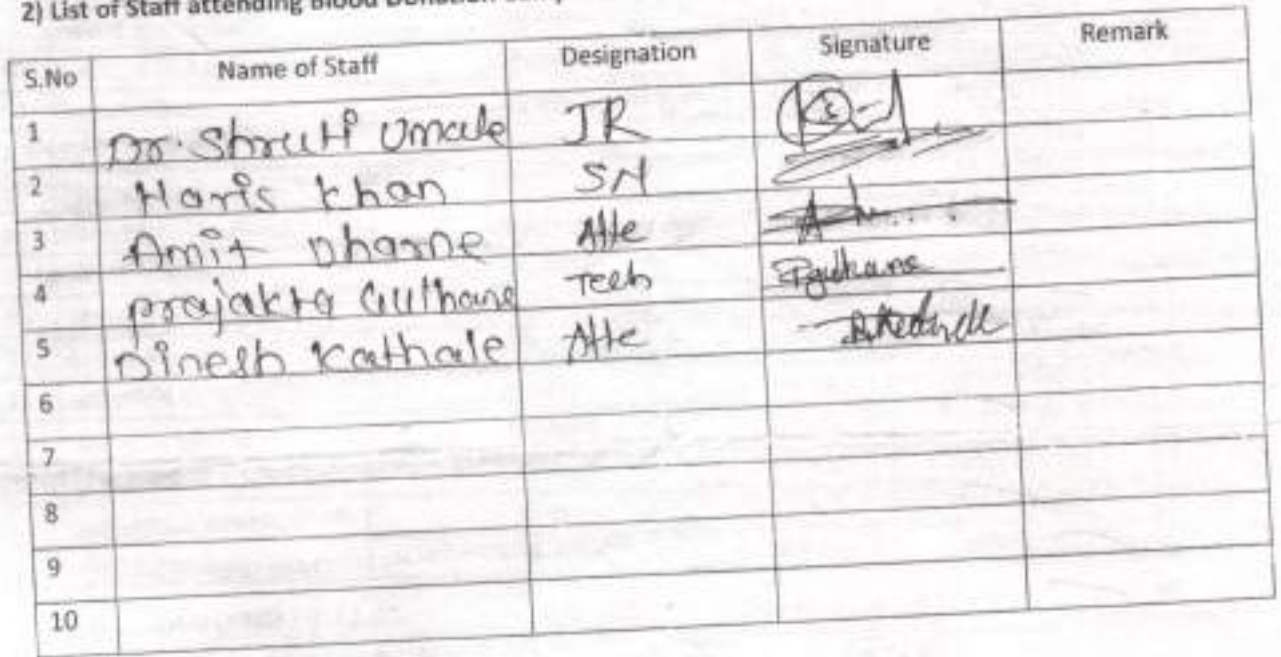 2) List of Staff attending Blood Donation
S.No Name of Staff Designation Signature Remark
1 Dr. Shruti Umale JR
2 Haris Khan SN
3 Amit Dharne Atte
4 prajakta Gulhane Tech
5 Dinesh Kathale Atte
6
7
8
9
10